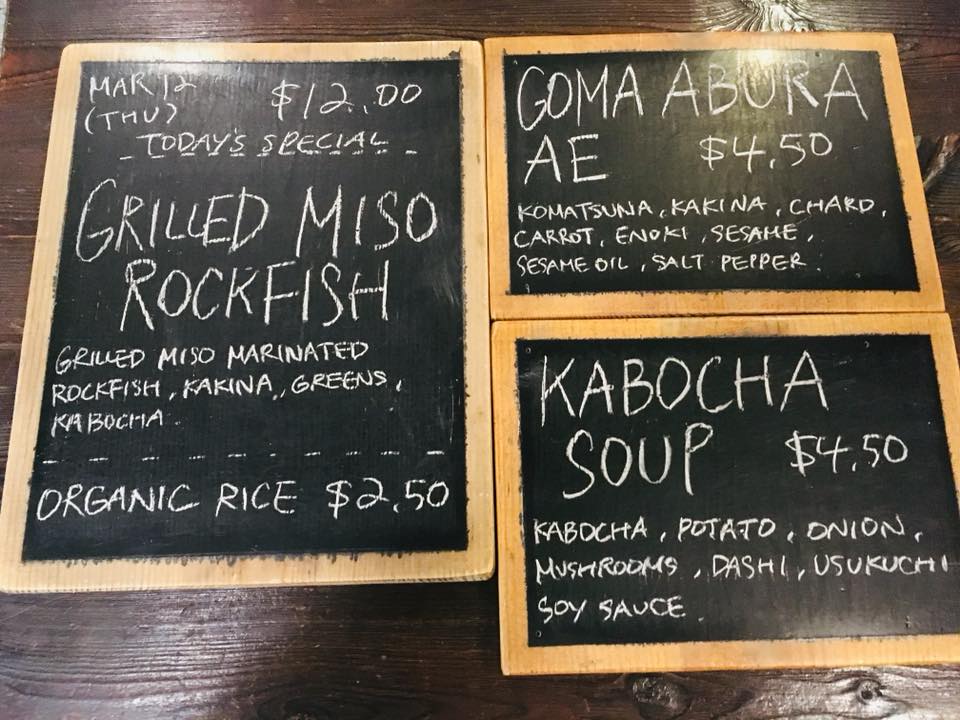 MAR 12
(THU)
$12.00
TODAY'S SPECIAL
GRILLED MISO
ROCKFISH
GRILLED MISO MARINATED
ROCKFISH, KAKINA, GREENS,
KABOCHA
ORGANIC RICE $2.50
GOMA ABURA
AE $4.50
KOMATSUNA, KAKINA, CHARD,
CARROT, ENOKI, SESAME,
SESAME OIL, SALT PEPPER.
KABOCHA
SOUP $4.50
KABOCHA, POTATO, ONION,
MUSHROOMS, DASHI, USUKUCHI
SOY SAUCE